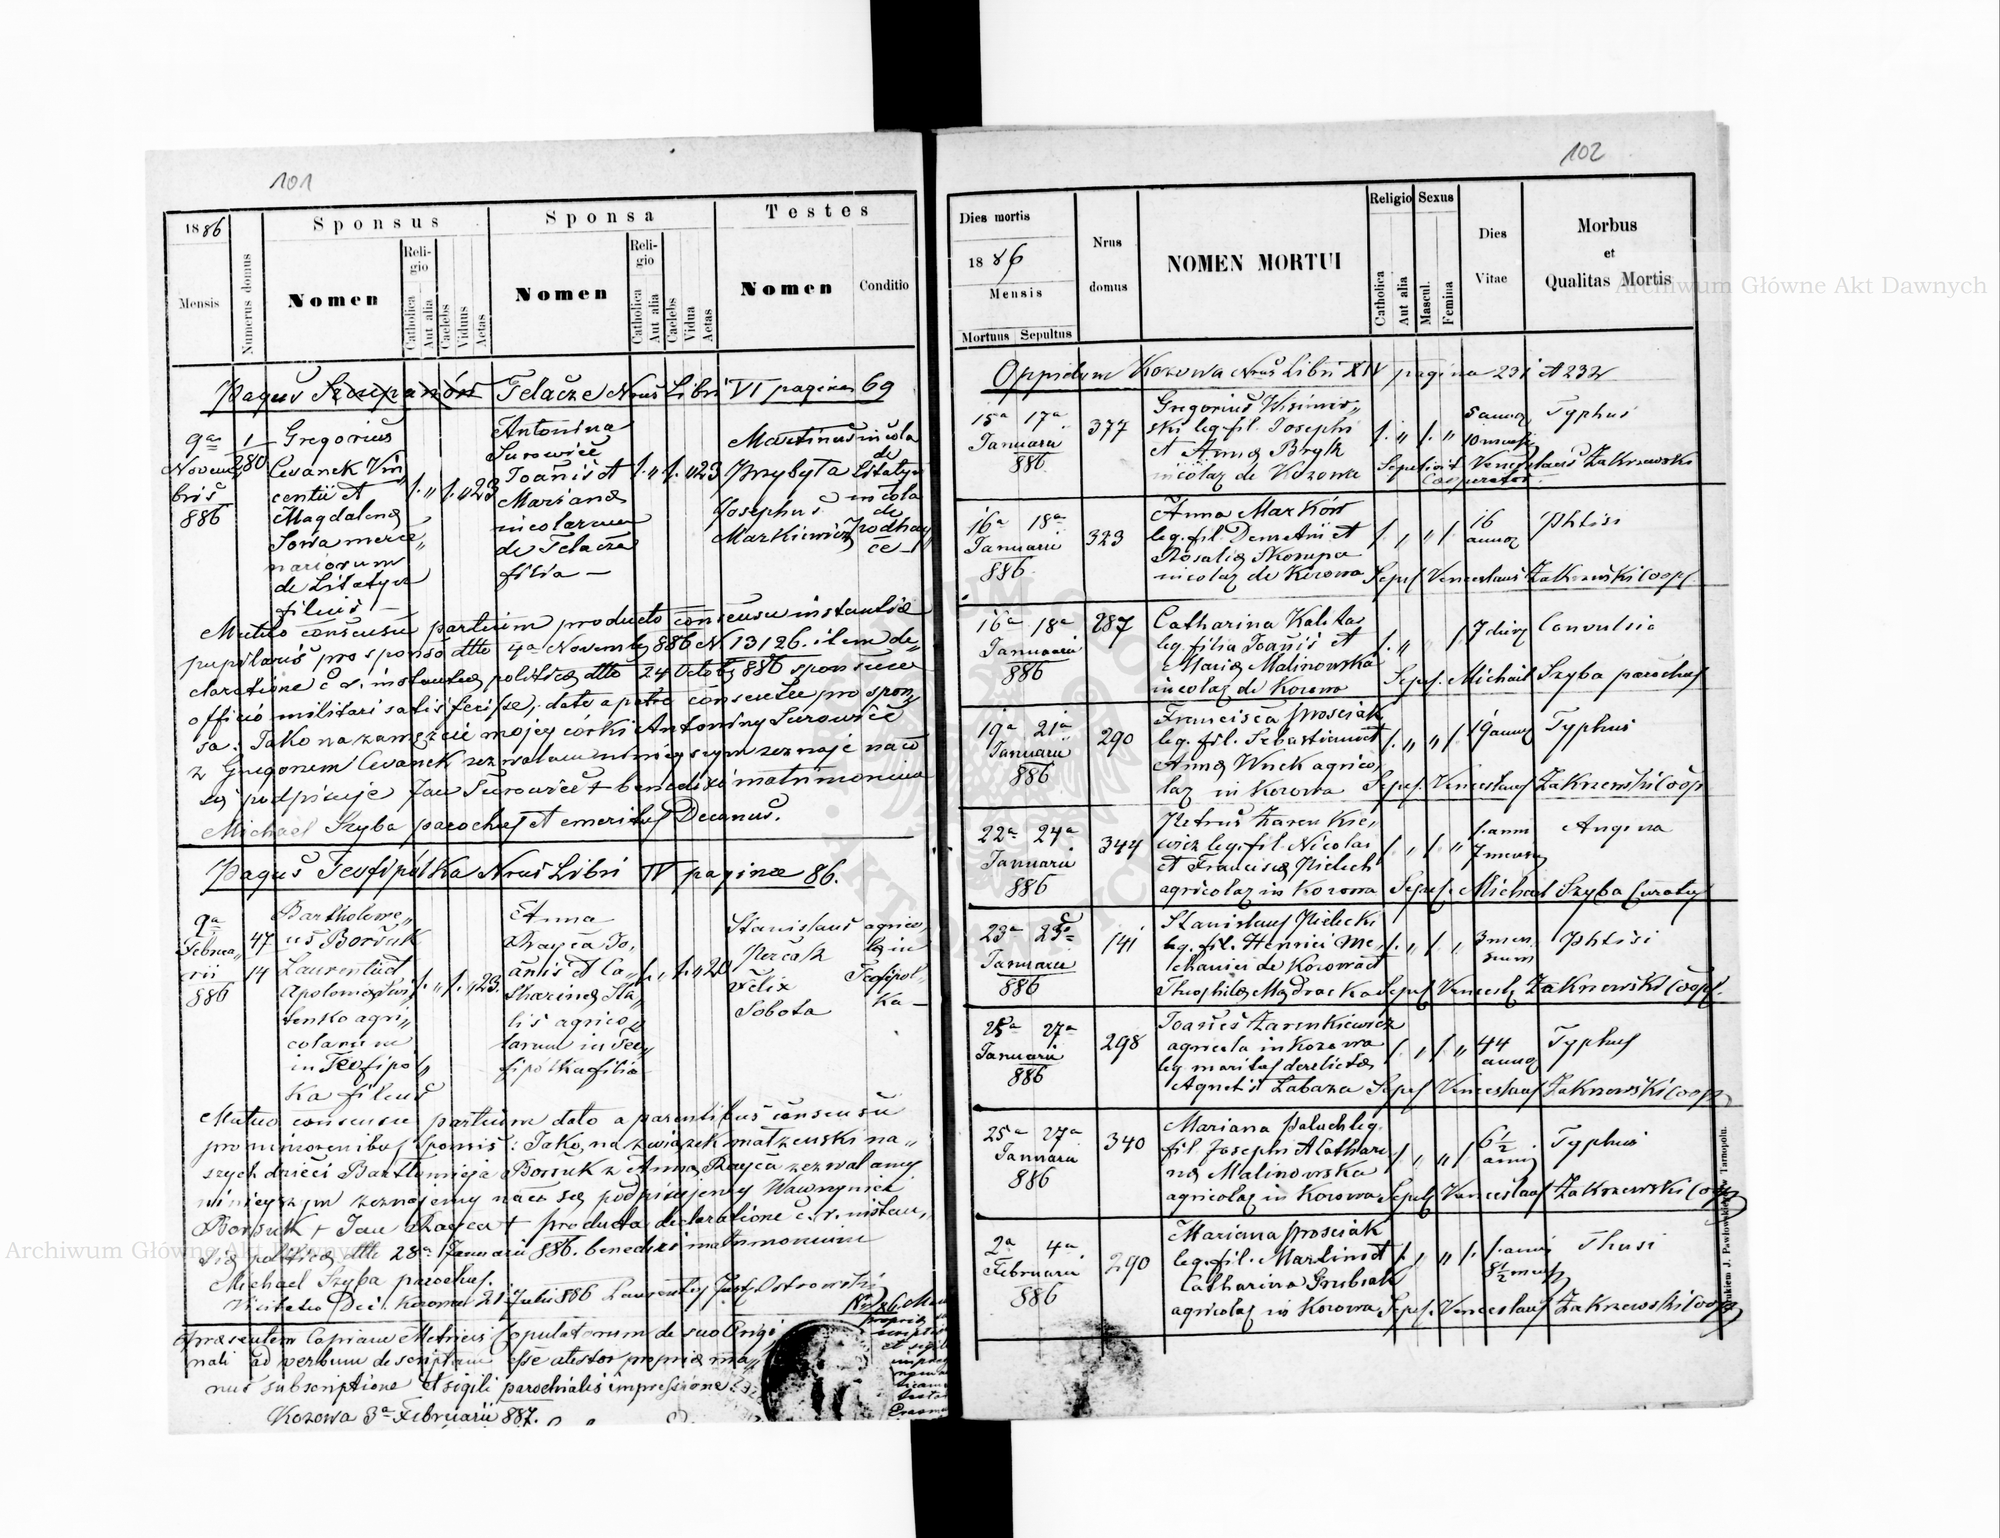 101
1886
Mensis
Numerus domus
Sponsus
Nomen
Religio
Catholica
Aut alia
Caelebs
Viduus
Aetas
Sponsa
Nomen
Religio
Catholica
Aut alia
Caelebs
Vidua
Aetas
Testes
Nomen
Conditio
Pagus Szczepanów Telacze Nrus Libri VI pagina 69
9a
Novem
bris
886
1
280
Gregorius
Cwanek Vin
centii et
Magdalena
Sowa merce
nariorum
de Litatyn
filius —
23
Antonina
Surowiec
Joannis et
Mariana
incolarum
de Telacze
filia —
23
Martinus
Przybyła
Josephus
Markiewicz
incola
de
Litatyn
incola
de
Podhay
ce —
Mutuo consensu partium producto consensu instantiae
pupilaris pro sponso dtto 4a Novembr 886 N. 13126. item de
claratione c. r. instantiae politicae dtto 24 Octobr 886 sponsum
officio militari satisfecisse, dato a patre consensu pro spon
sa: Jako na zamęzcie mojej córki Antoniny Surowiec
z Gregorem Cwanek zezwalam niniejszym zeznaje na co
się podpisuje Jan Surowiec + benedixi matrimonium
Michael Szyba parochus et emeritus Decanus.
Pagus Teofipólka Nrus Libri IV pagina 86.
9a
Februa
rii
886
47
14
Bartholome
us Borsuk
Laurentii et
Apolonia
lenko agri
colarum
in Teofipol
ka filius
23.
Anna
Rayca Jo
annis et Ca
tharina Ha
lis agrico
larum in Teo
fipolka filia
20
Stanislaus
Perčak
Felix
Sobota
agrico
la in
Teofipol
ka —
Mutuo consensu partium dato a parentibus consensu
pro minorenibus sponsis: Jako, na związek małżenski na
szych dzieci Bartłomieja Borsuk z Anną Rayca zezwalamy
niniejszym zeznajemy na co się podpisujemy Wawrzyniec
Borsuk + Jan Rayca + producta declaratione c. r. instan
tiae politicae dtto 28a Januarii 886. benedixi matrimonium
Michael Szyba parochus.
Visitatio Dec. Kozowa 21 Julii 886 Laurentius Ostrowski
Praesentem Copiam Metrices Copulatorum de suo Origi
nali ad verbum descriptam esse atestor propria ma
nus subscriptione et sigili parochialis impressione
Kozowa 3a Februarii 887.
102
Dies mortis
1886
Mensis
Mortuus Sepultus
Nrus
domus
NOMEN MORTUI
Religio
Catholica
Aut alia
Sexus
Mascul.
Femina
Dies
Vitae
Morbus
et
Qualitas Mortis
Oppidum Kozowa Nrus Libri XIV pagina 231 et 232
15a 17a
Januarii
886
377
Gregorius Wisniow
ski leg. fil. Josephi
et Anna Bryk
incolar de Kozowa
5 annor
10 mensi
Typhus
Sepelivit Venceslaus Zakrzewski
Cooperator.
16a 18a
Januarii
886
323
Anna Marków
leg. fil. Demetrii et
Rosalia Skorupa
incolar de Kozowa
16
annor
Phtisi
Sepel. Venceslaus Zakrzewski Coop.
16a 18a
Januarii
886
287
Catharina Kalita
leg. filia Joannis et
Maria Malinowska
incolar de Kozowa
7 dier
Convulsio
Sepel. Michael Szyba parochus
19a 21a
Januarii
886
290
Francisca Prosciak
leg. fil. Sebastiani et
Anna Wnek agrico
lar in Kozowa
19 annor
Typhus
Sepel. Venceslaus Zakrzewski Coop
22a 24a
Januarii
886
344
Petrus Zarenkie
wicz leg. fil. Nicolai
et Francisca Pielech
agricolar in Kozowa
1. anni
7 mensi
Angina
Sepel. Michael Szyba Curatus
23a 25a
Januarii
886
141
Stanislaus Pielecki
leg. fil. Henrici Me
chanici de Kozowa et
Theophila Mądracka
3 men
sium
Phtisi
Sepel. Vencesl. Zakrzewski Coop.
25a 27a
Januarii
886
298
Joannes Zarenkiewicz
agricola in Kozowa
leg. maritus derelicta
Agnetis Łabaza
44
annor
Typhus
Sepel. Venceslaus Zakrzewski Coop
25a 27a
Januarii
886
340
Mariana Paluch leg.
fil. Josephi et Cathari
na Malinowska
agricolar in Kozowa
6 1/2
annor
Typhus
Sepel. Venceslaus Zakrzewski Coop
2a 4a
Februarii
886
290
Mariana Prosciak
leg. fil. Martini et
Catharina Grubiak
agricolar in Kozowa
1. anni
8 1/2 mens
Tussi
Sepel. Venceslaus Zakrzewski Coop
Drukiem J. Pawłowskiego w Tarnopolu.
Archiwum Główne Akt Dawnych
Archiwum Główne Akt Dawnych